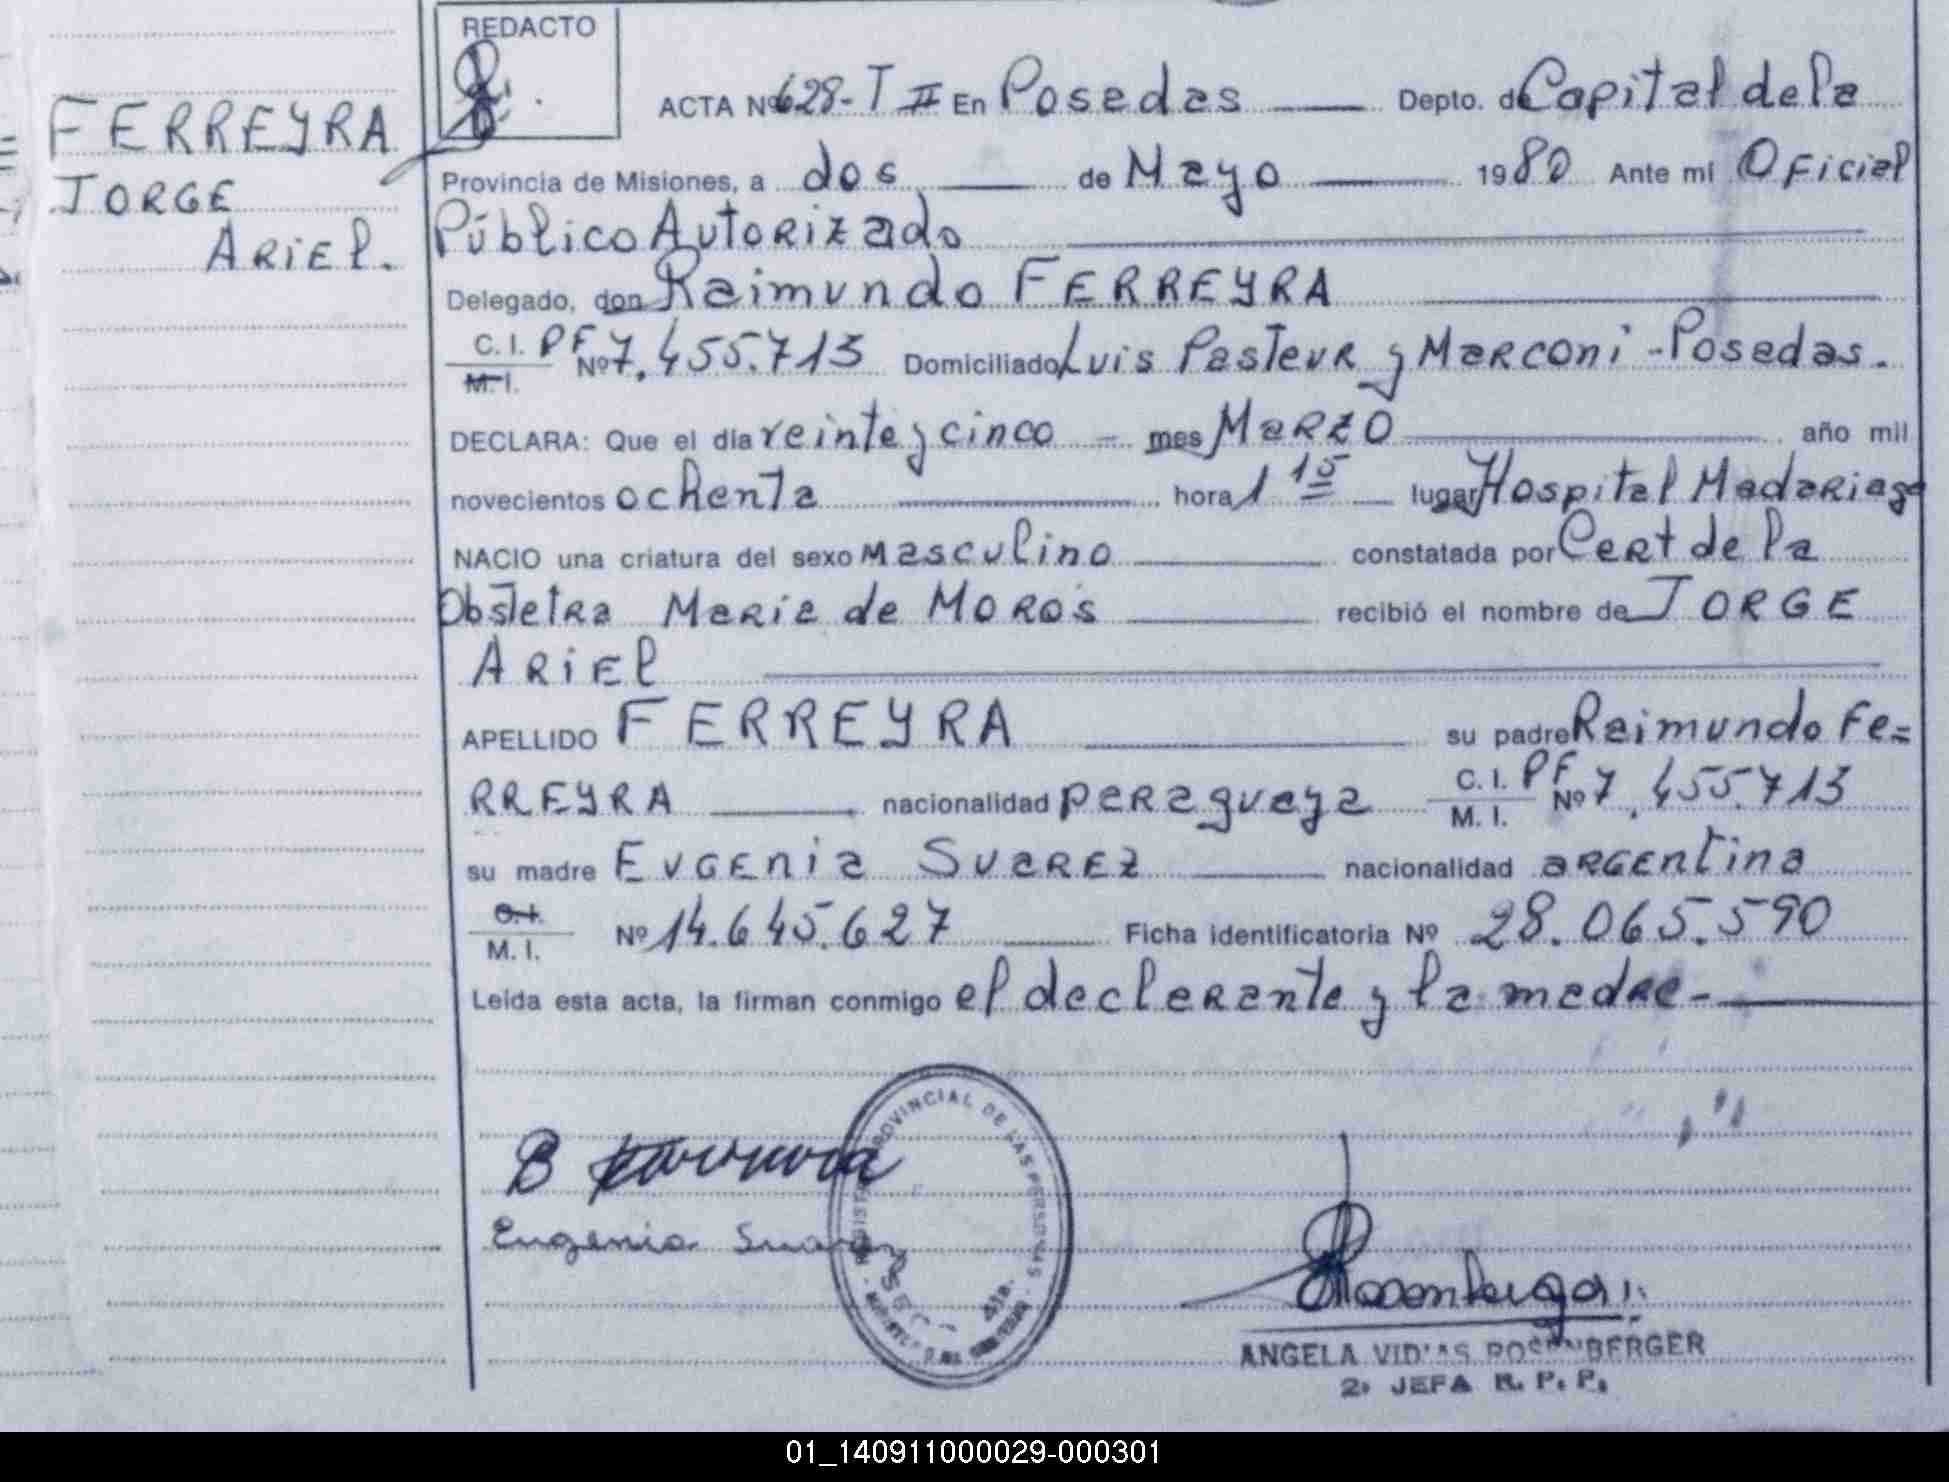 REDACTO
FERREYRA
JORGE
ARIEL.
ACTA Nº 628-T II En Posadas Depto. de Capital de la
Provincia de Misiones, a dos de Mayo 1980 Ante mi Oficial
Público Autorizado
Delegado, don Raimundo FERREYRA
C. I. PF Nº 7.455.713 Domiciliado Luis Pasteur y Marconi - Posadas.
M. I.
DECLARA: Que el día veinte y cinco - mes Marzo año mil
novecientos ochenta hora 1 15 lugar Hospital Madariaga
NACIO una criatura del sexo masculino constatada por Cert de la
Obstetra Maria de Moros recibió el nombre de JORGE
ARIEL
APELLIDO FERREYRA su padre Raimundo Fe=
RREYRA nacionalidad paraguaya C. I. PF Nº 7.455.713
M. I.
su madre Eugenia Suarez nacionalidad argentina
C. I.
M. I. Nº 14.645.627 Ficha identificatoria Nº 28.065.590
Leída esta acta, la firman conmigo el declarante y la madre-
Eugenia Suarez
PROVINCIAL DE LAS PERSONAS
ANGELA ROSENBERGER
2º JEFA R. P. P.
01_140911000029-000301